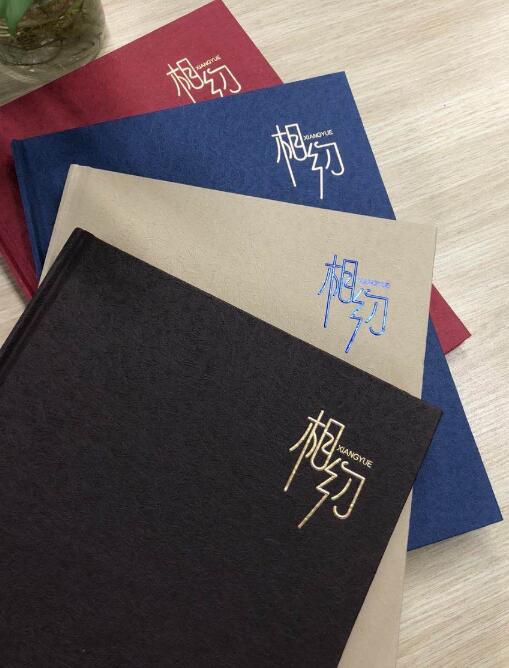 相约
XIANGYUE
相约
XIANGYUE
相约
XIANGYUE
相约
XIANGYUE